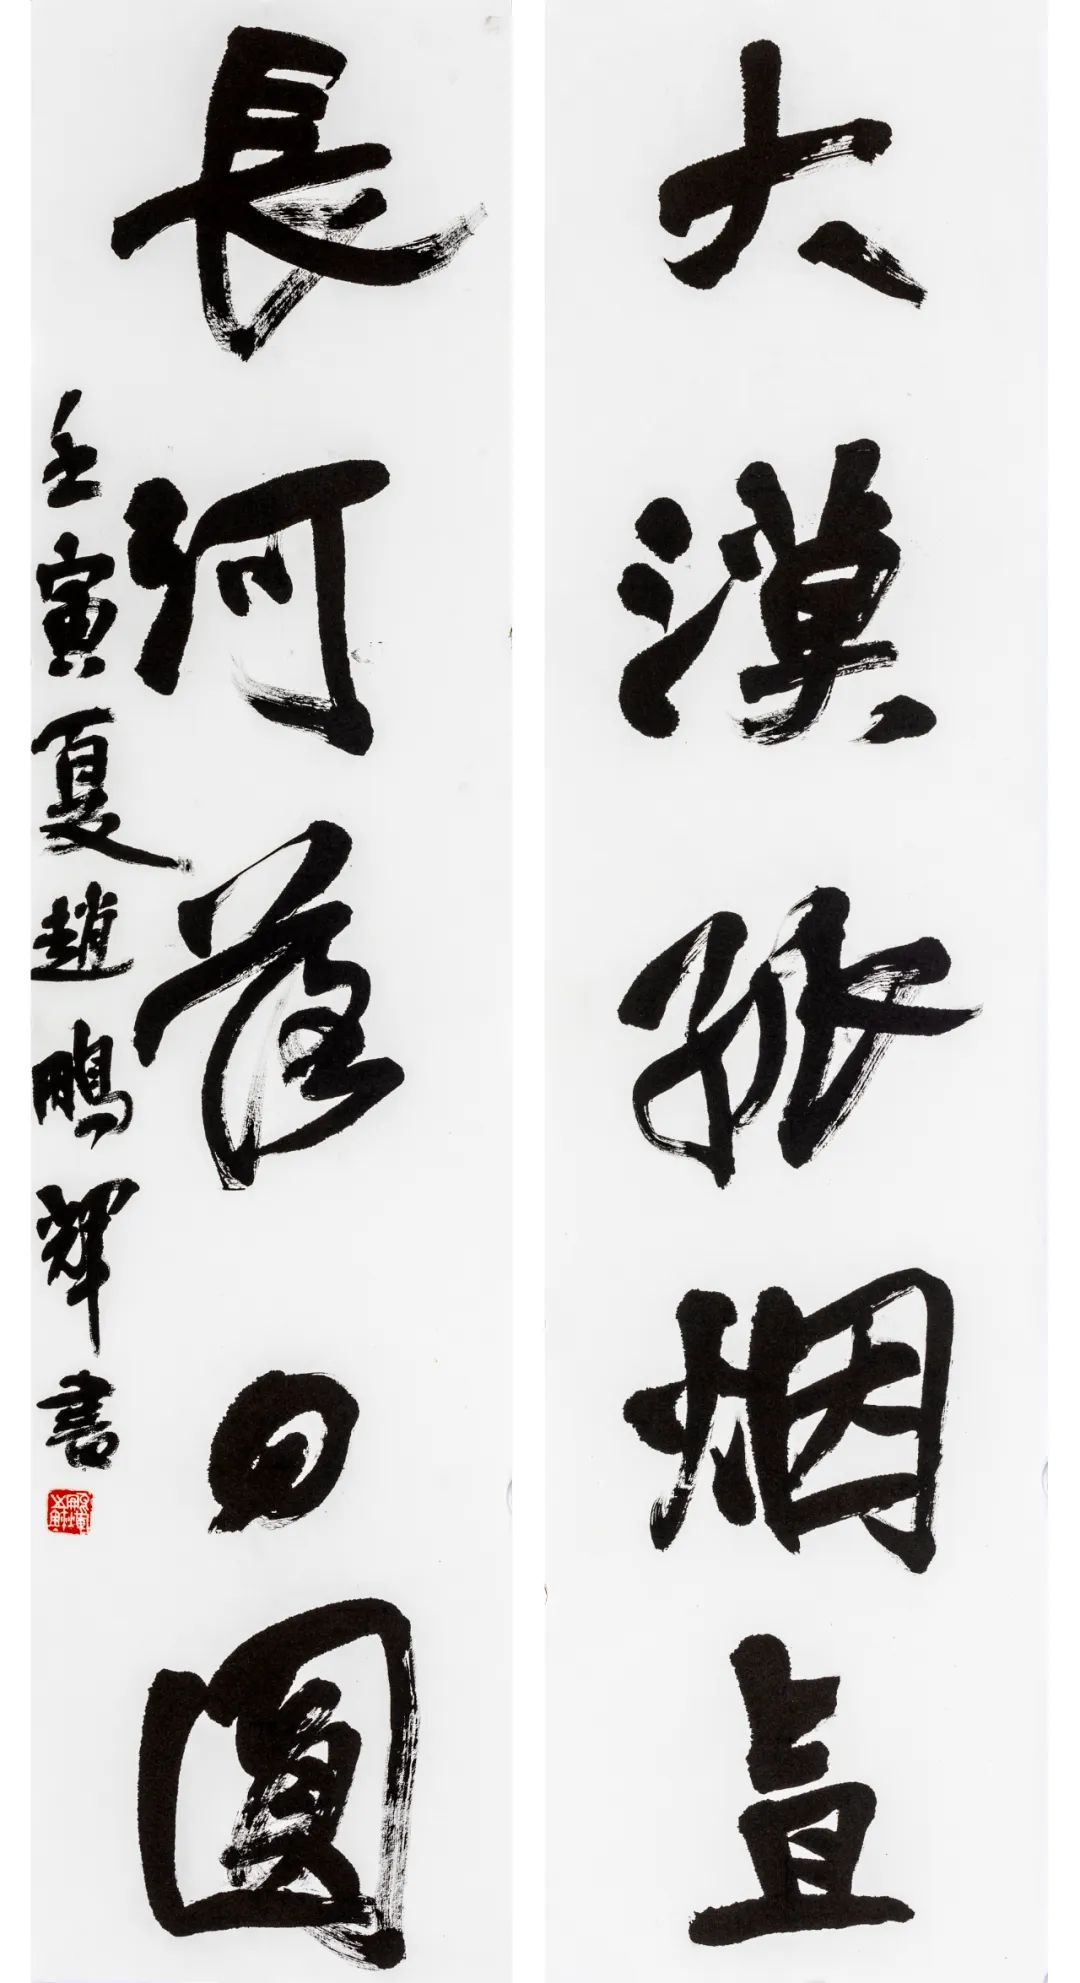 大漠孤烟直
長河落日圓
壬寅夏趙鵬輝書